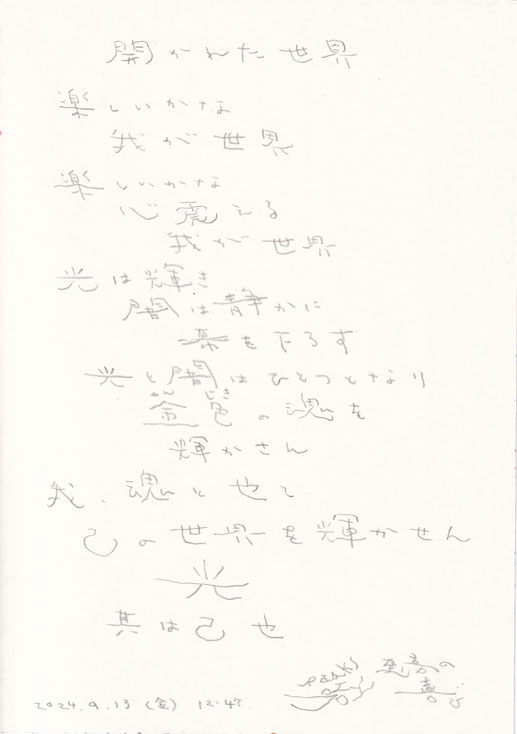 開かれた世界
楽しいかな
我が世界
楽しいかな
心震える
我が世界
光は輝き
闇は静かに
幕を下ろす
光と闇はひとつとなり
の魂を
輝かさん
我、魂と也て
己の世界を輝かせん
光
其は己也
2024.9.13 (金) 12:47